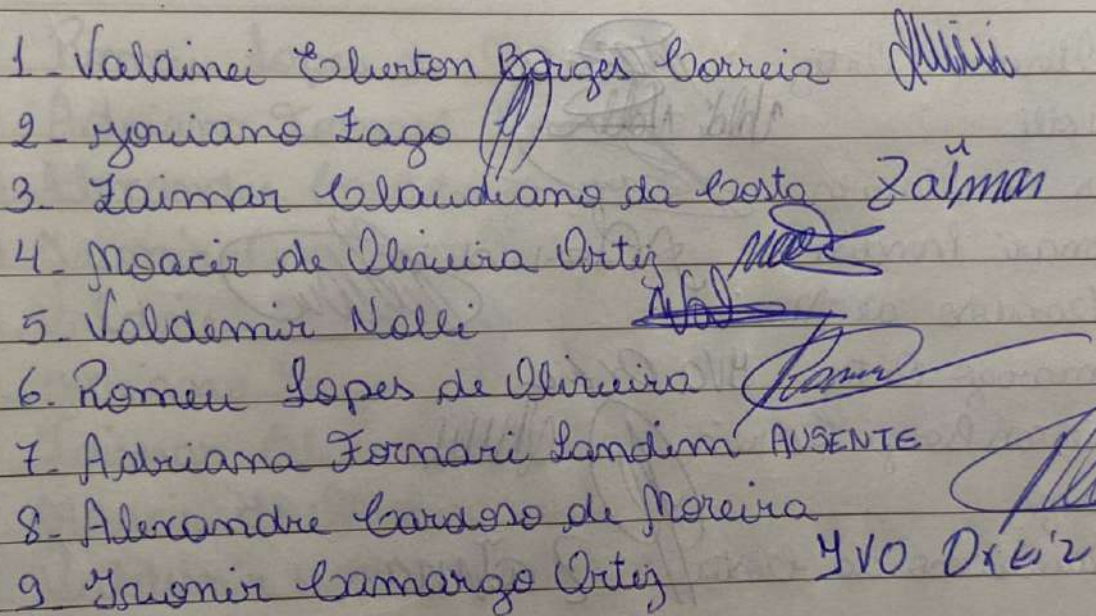 1- Valdinei Elverton Borges Correia
2- Joviano Zago
3. Zaimar Claudiano da Costa Zaimar
4- Moacir de Oliveira Ortiz
5. Valdemir Nalli
6. Romeu Lopes de Oliveira
7- Adriana Fornari Landim AUSENTE
8- Alexandre Cardoso de Moreira
9 Ivonir Camargo Ortiz IVO Ortiz